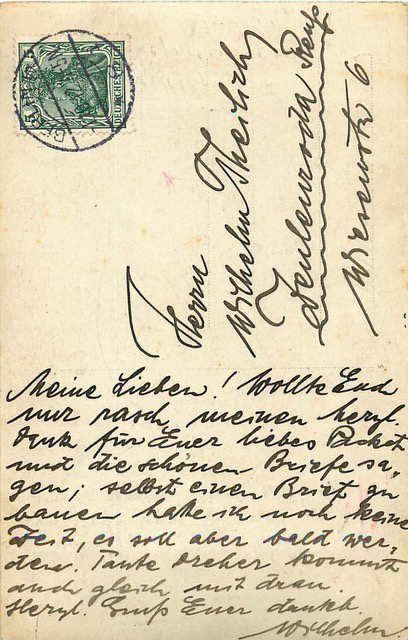 DEUTSCHES REICH
5
BERLIN
Herrn
Wilhelm Theilich
Zeulenroda Reuß
Wiesenstr 6
Meine Lieben! Wollte Euch
nur rasch meinen herzl.
Dank für Euer liebes Packet
und die schönen Briefe sa-
gen; selbst einen Brief zu
bauen habe ich noch keine
Zeit, es soll aber bald wer-
den. Tante Dreher kommt
auch gleich mit dran.
Herzl. Gruß Euer dankb.
Wilhelm